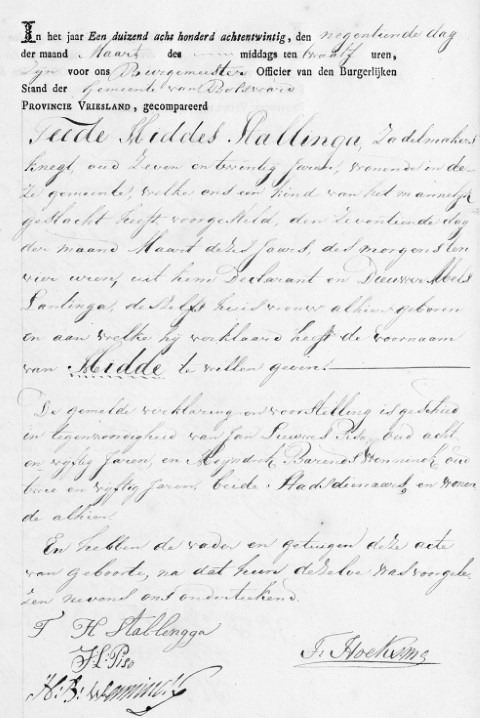 In het jaar Een duizend acht honderd achtentwintig, den negentiende dag
der maand Maart des middags ten twaalf uren,
Zyn voor ons Burgemeester Officier van den Burgerlijken
Stand der Gemeente van Bolsward
PROVINCIE VRIESLAND, gecompareerd
Feede Hiddes Stallinga, Zadelmakers
knegt, oud Zeven en twintig Jaren, wonende in de-
ze gemeente, welke ons een kind van het mannelijk
geslacht heeft voorgesteld, den Zeventiende dag
der maand Maart dezes Jaars, des morgens ten
vier uren, uit hem Declarant en Dieuwke
Lantinga, deszelfs huisvrouw alhier geboren
en aan welke hij verklaard heeft de voornaam
van Hidde te willen geven.
De gemelde verklaring en voorstelling is geschied
in tegenwoordigheid van Jan Piso, oud acht
en vyftig Jaren, en Meyndert Barends Wennink, oud
twee en vyftig Jaren, beide Stadsdienaars, en wonen
de alhier
En hebben de vader en getuigen deze acte
van geboorte, na dat hun dezelve was voorgele
zen nevens ons onderteekend.
F H Stallengga
H: Piso
H: B: Wennink
F. Hoeksma